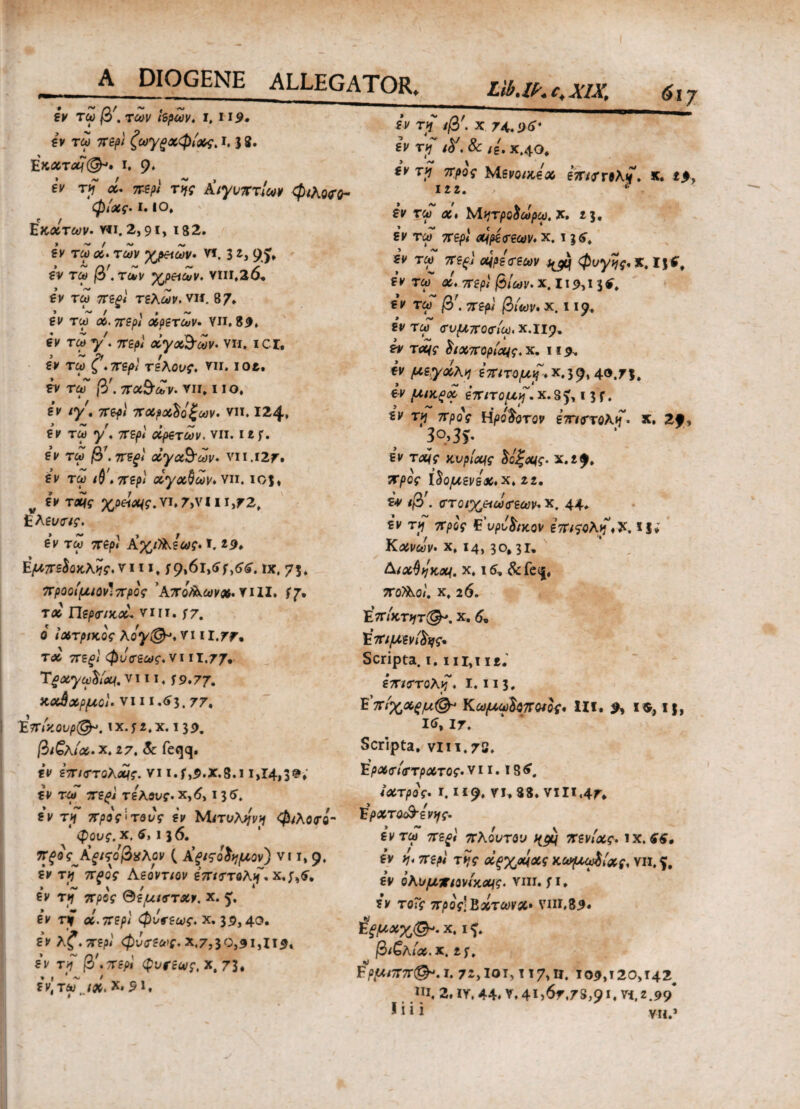 A DIOGENE ALLEGATOR. Lib. IV. c. XIX. 617
ἐν τῷ β΄. τῶν ἱερῶν. I, 119.
ἐν τῷ περὶ ζωγραφίας. I. 38.
Ἑκαταῖος. I, 9.
ἐν τῇ α. περὶ τῆς Αἰγυπτίων φιλοσο-
φίας. I. 10.
Ἑκάτων. VII. 2, 91, 182.
ἐν τῷ α. τῶν χρειῶν. VI. 32, 95.
ἐν τῷ β΄. τῶν χρειῶν. VIII, 26.
ἐν τῷ περὶ τελῶν. VII. 87.
ἐν τῷ α. περὶ ἀρετῶν. VII, 89,
ἐν τῷ γ΄. περὶ ἀγαθῶν. VII, 101,
ἐν τῷ ζ΄. περὶ τέλους. VII. 102.
ἐν τῷ β΄. παθῶν. VII, 110,
ἐν ιγ΄. περὶ παραδόξων. VII. 124,
ἐν τῷ γ΄. περὶ ἀρετῶν. VII. 125.
ἐν τῷ β΄. περὶ ἀγαθῶν. VII. 127.
ἐν τῷ ιθ΄. περὶ ἀγαθῶν. VII. 103,
ἐν ταῖς χρείαις. VI. 7, VIII, 72,
Ἔλευσις.
ἐν τῷ περὶ Ἀχιλλέως. I. 29.
Ἐμπεδοκλῆς. VIII, 59, 61, 65, 66. IX, 73.
προοίμιον πρὸς Ἀπόλλωνα. VIII. 57.
τὰ Περσικά. VIII. 57.
ὁ ἰατρικὸς λόγος. VIII. 77.
τὰ περὶ φύσεως. VIII. 77.
Τραγῳδίαι. VIII. 59. 77.
καθαρμοί. VIII. 63. 77.
Ἐπίκουρος. IX. 52. X. 139.
βιβλία. X. 27. & seqq.
ἐν ἐπιστολαῖς. VII. 5, 9. X. 8. 11, 14, 30,
ἐν τῷ περὶ τέλους. X, 6, 136.
ἐν τῇ πρὸς τοὺς ἐν Μιτυλήνῃ φιλοσό-
φους. X. 6, 136.
πρὸς Ἀριστόβουλον ( Ἀριστόδημον) VII, 9.
ἐν τῇ πρὸς Λεόντιον ἐπιστολῇ. X. 5, 6.
ἐν τῇ πρὸς Θέμισταν. X. 5.
ἐν τῇ α. περὶ φύσεως. X. 39, 40.
ἐν λζ. περὶ φύσεως. X. 7, 30, 91, 119.
ἐν τῇ β΄. περὶ φύσεως. X, 73.
ἐν τῷ ια. X. 91.
ἐν τῇ ιβ΄. X 74. 96.
ἐν τῇ ιδ΄. & ιε. X. 40.
ἐν τῇ πρὸς Μενοικέα ἐπιστολῇ. X. 29,
122.
ἐν τῷ α. Μητροδώρῳ. X. 23.
ἐν τῷ περὶ αἱρέσεων. X. 136.
ἐν τῷ περὶ αἱρέσεων καὶ φυγῆς. X. 136,
ἐν τῷ α. περὶ βίων. X. 119, 136.
ἐν τῷ β΄. περὶ βίων. X. 119.
ἐν τῷ συμποσίῳ. X. 119.
ἐν ταῖς διαπορίαις. X. 119.
ἐν μεγάλῃ ἐπιτομῇ. X. 39, 40. 73,
ἐν μικρᾷ ἐπιτομῇ. X. 85, 135.
ἐν τῇ πρὸς Ἡρόδοτον ἐπιστολῇ. X. 29,
30, 35.
ἐν ταῖς κυρίαις δόξαις. X. 29.
πρὸς Ἰδομενέα. X. 22.
ἐν ιβ΄. στοιχειώσεων. X. 44.
ἐν τῇ πρὸς Εὐρύδικον ἐπιστολῇ. X. 13,
Κανών. X, 14, 30, 31.
Διαθῆκαι. X. 16, & seq.
πολλοί. X, 26.
Ἐπίκτητος. X. 6,
Ἐπιμενίδης.
Scripta. I. 111, 112.
ἐπιστολή. I. 113.
Ἐπίχαρμος Κωμῳδοποιός. III. 9, 10, 15,
16, 17.
Scripta, VIII. 78.
Ἐρασίστρατος. VII. 186.
ἰατρός. I. 119. VI, 88. VIII, 47.
Ἐρατοσθένης.
ἐν τῷ περὶ πλούτου καὶ πενίας. IX. 66.
ἐν η. περὶ τῆς ἀρχαίας κωμῳδίας, VII. 5,
ἐν ὀλυμπιονίκαις. VIII. 51,
ἐν τοῖς πρὸς Βάτωνα. VIII, 89.
Ἕρμαχος. X, 15.
βιβλία. X. 25.
Ἕρμιππος. I. 72, 101, 117, II. 109, 120, 142
III, 2. IV. 44. V. 41, 67, 78, 91. VI. 2. 99
Iiii VII.